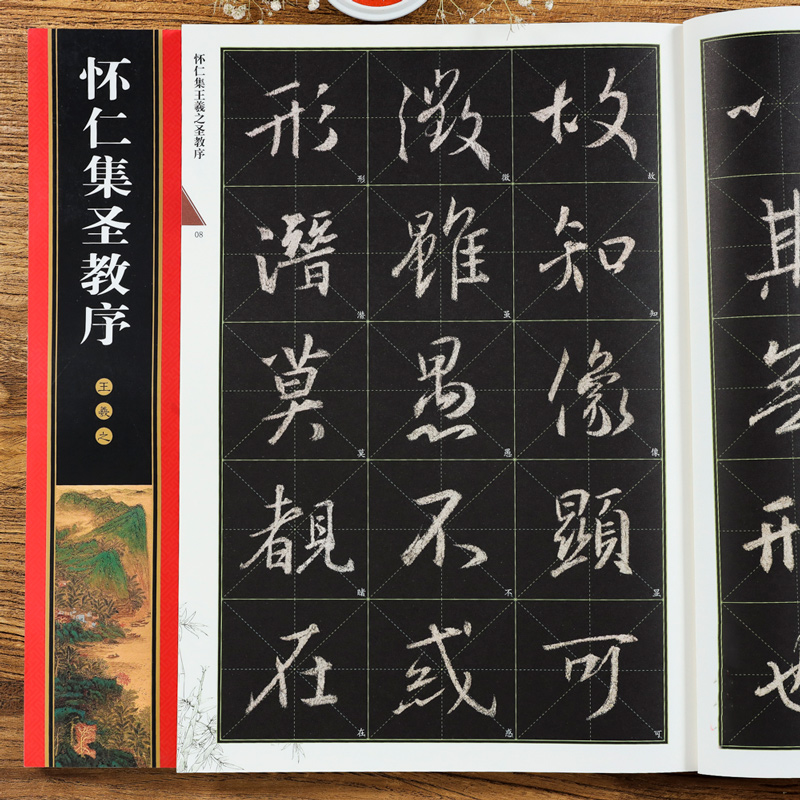 怀仁集圣教序
王羲之
怀仁集王羲之圣教序
08
故知像顯可
徵雖愚不惑
形潛莫覩在
故知像显可
徵虽愚不惑
形潜莫睹在